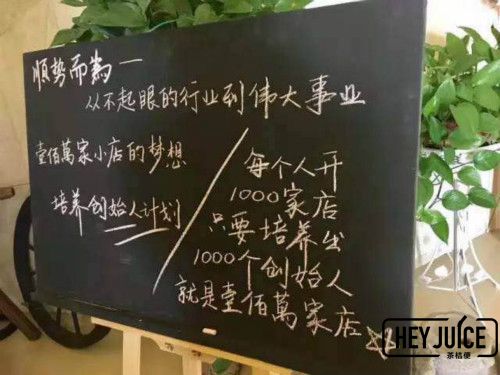 顺势而为——
从不起眼的行业到伟大事业
壹佰萬家小店的梦想
培养创始人计划
每个人开
1000家店
只要培养出
1000个创始人
就是壹佰萬家店
HEY JUICE
茶桔便